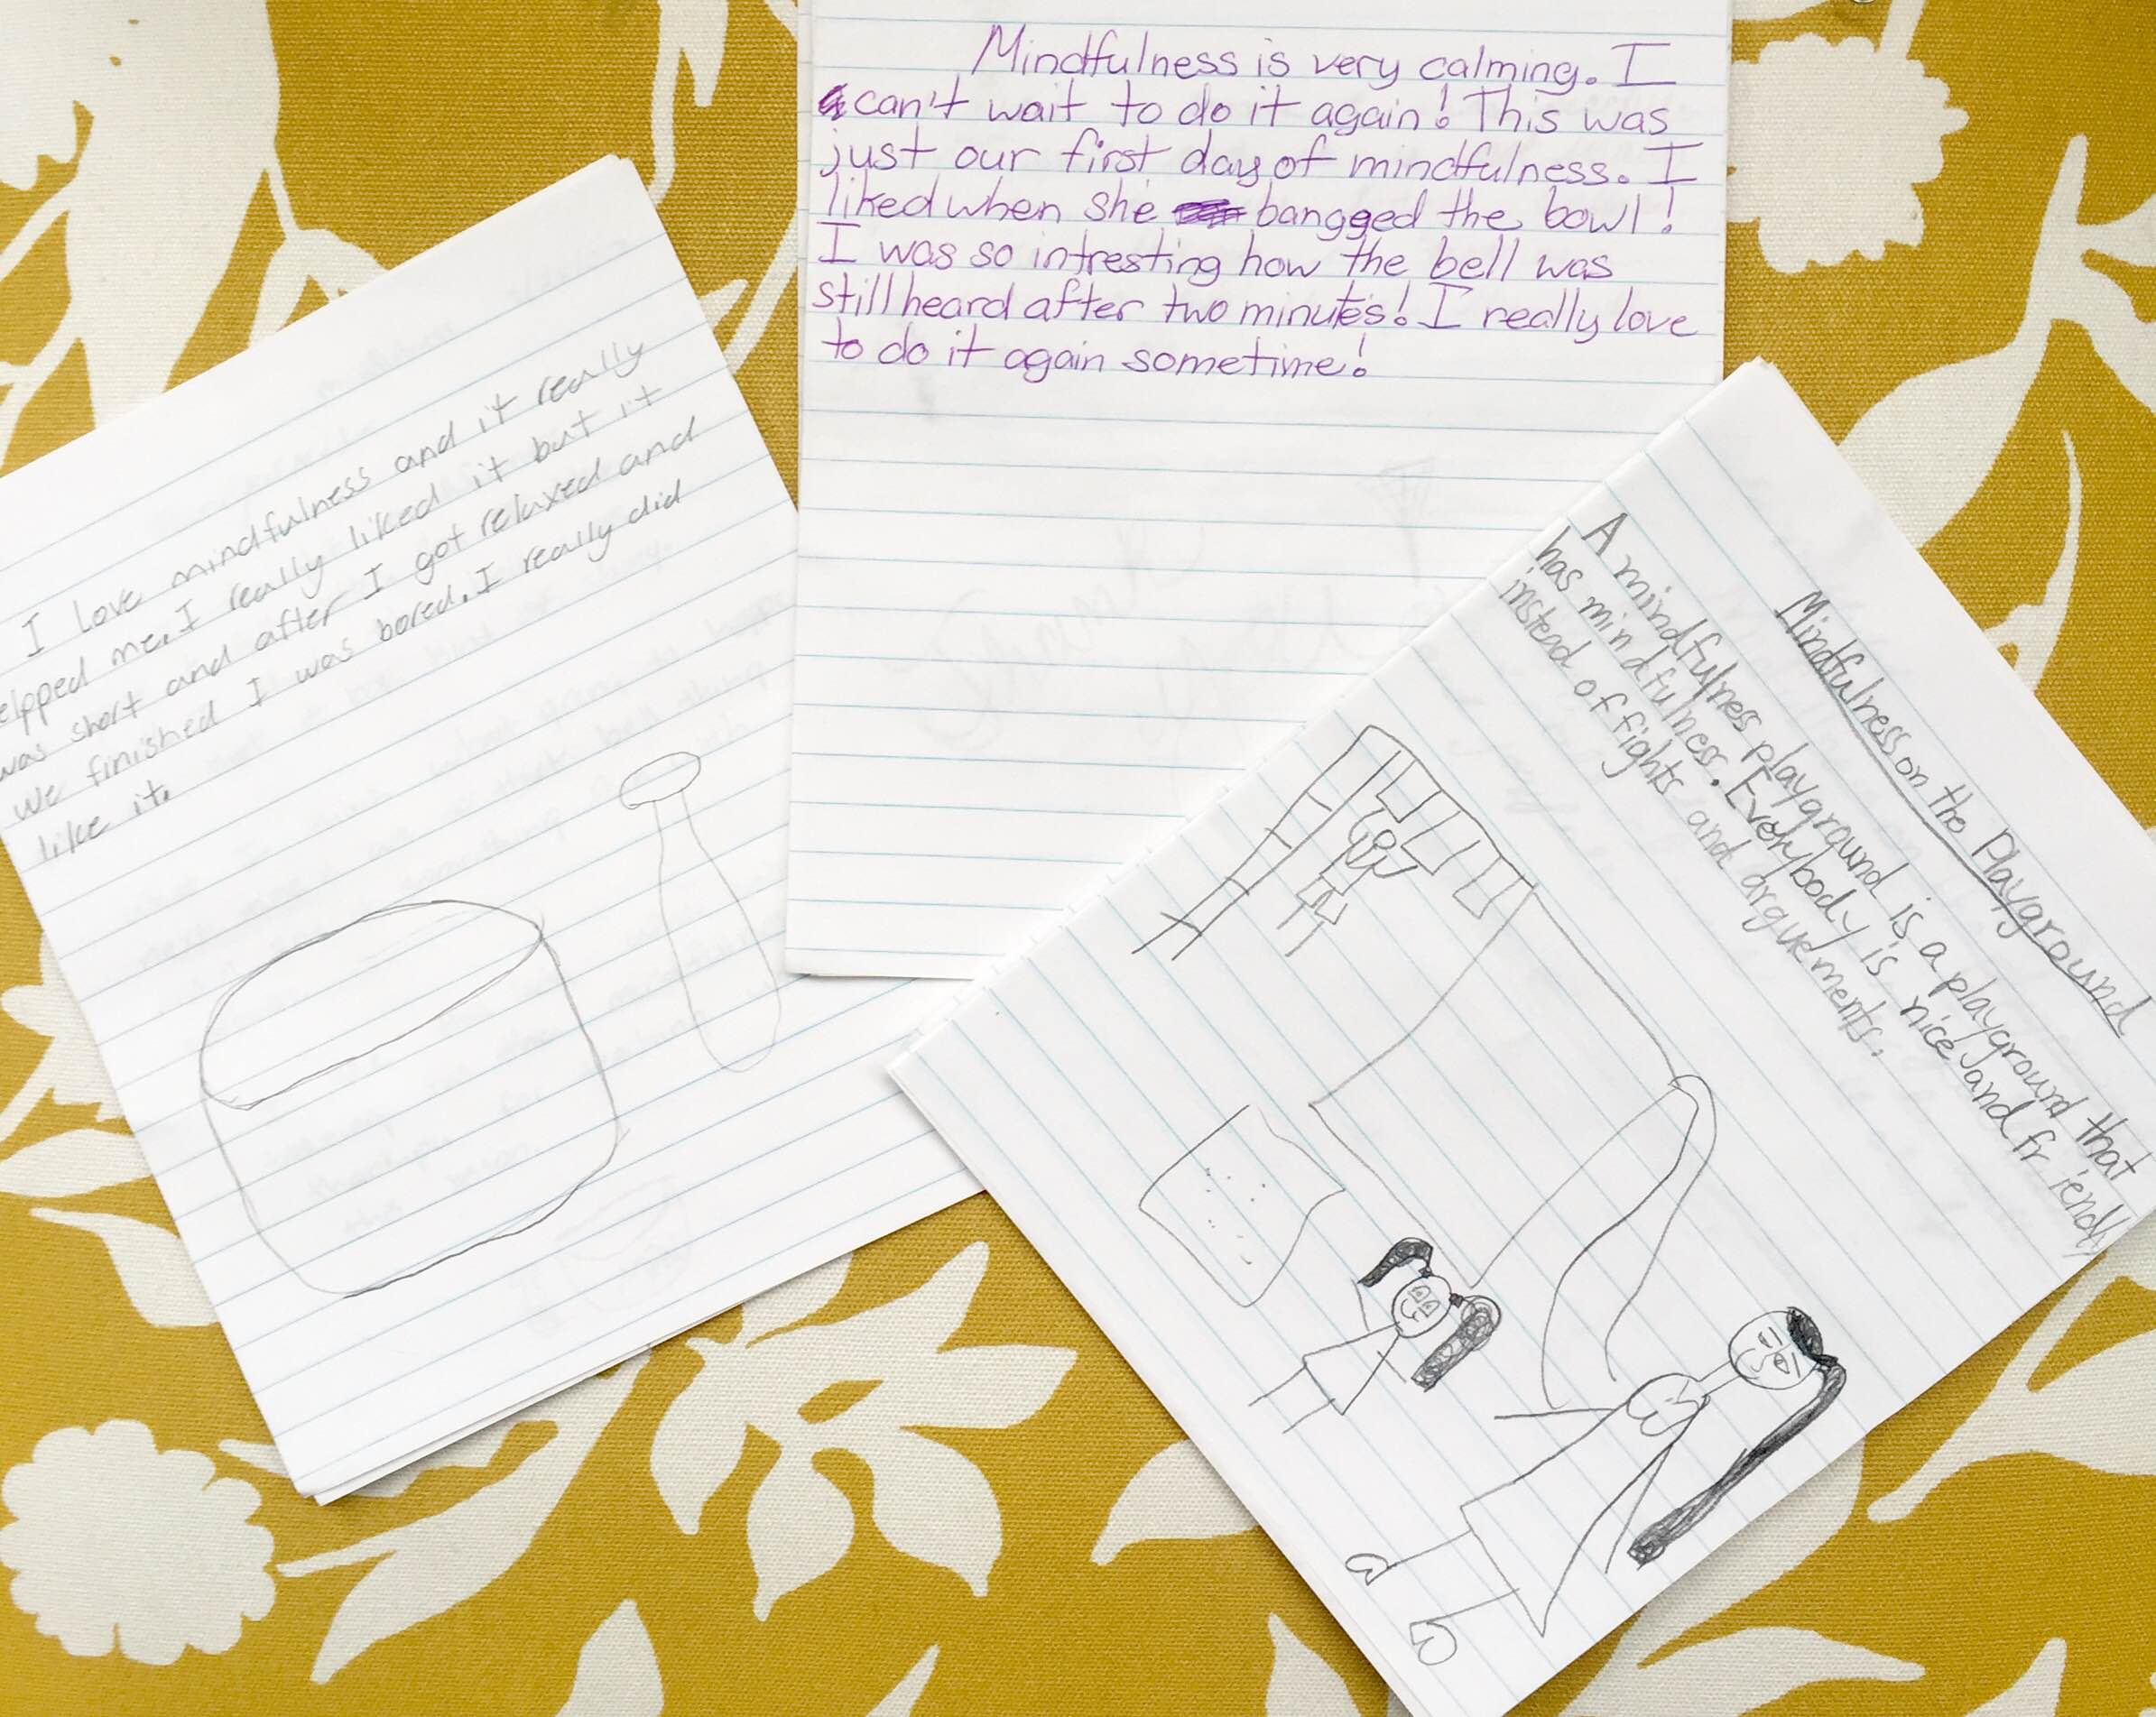 I Love mindfulness and it really
elpped me. I really liked it but it
was short and after I got relaxed and
we finished I was bored. I really did
like it.
Mindfulness is very calming. I
can't wait to do it again! This was
just our first day of mindfulness. I
liked when she bangged the bowl!
I was so intresting how the bell was
still heard after two minutes! I really love
to do it again sometime!
Mindfulness on the Playground
A mindfulnes playground is a playground that
has mindfulness. Everybody is nice and friendly
instead of fights and arguements.